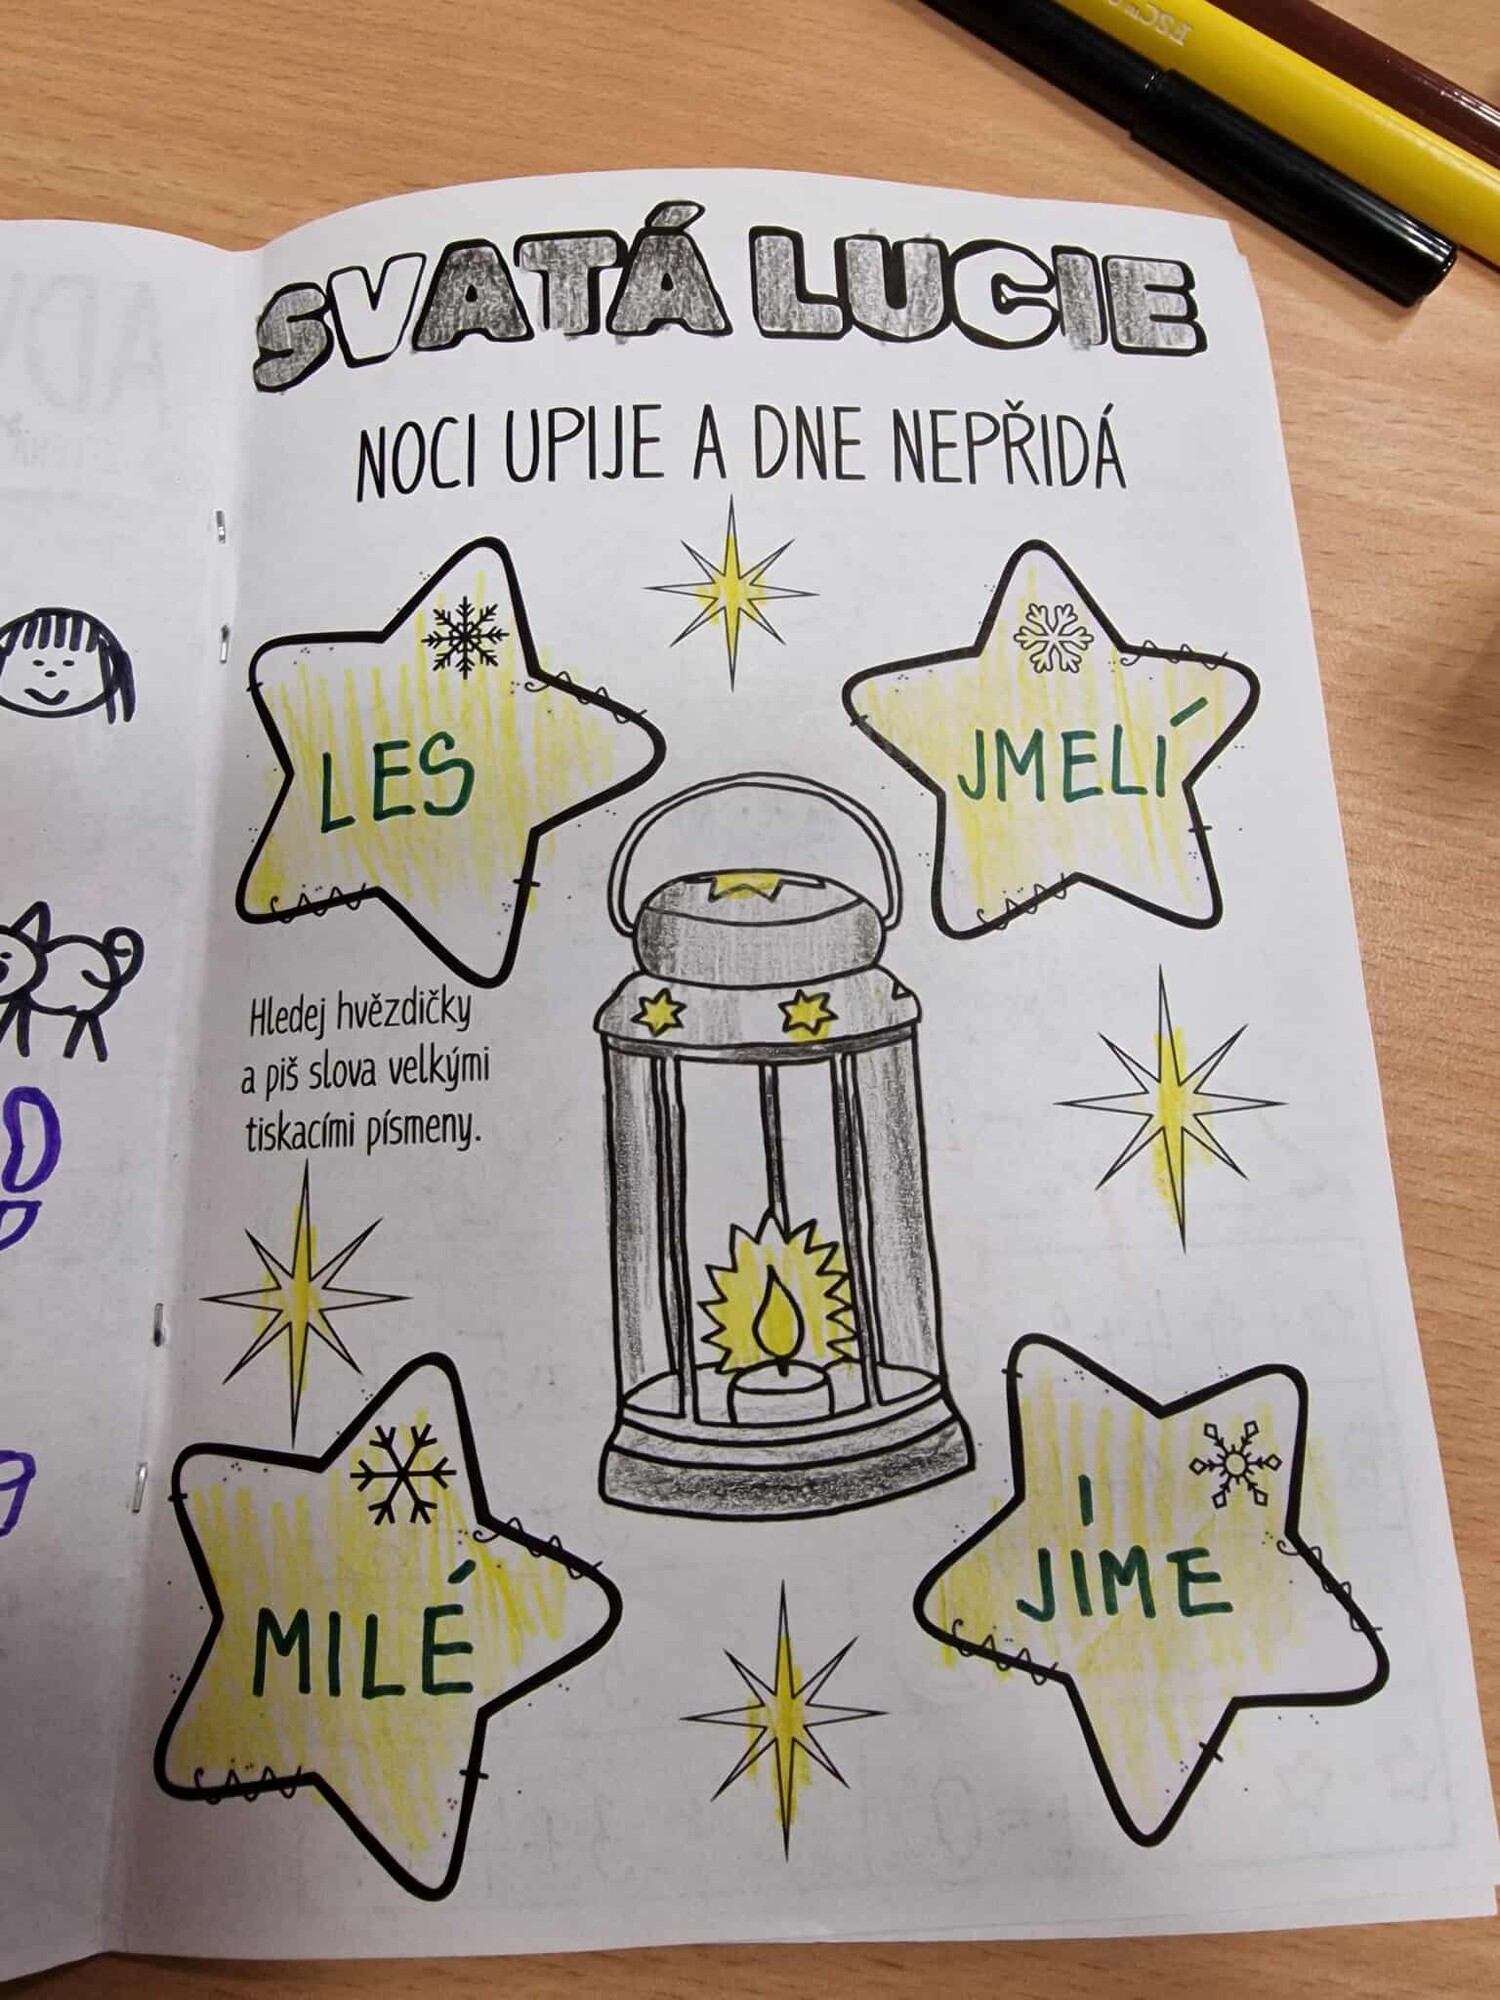 SVATÁ LUCIE
NOCI UPIJE A DNE NEPŘIDÁ
LES
JMELÍ
Hledej hvězdičky
a piš slova velkými
tiskacími písmeny.
MILÉ
I
JIME